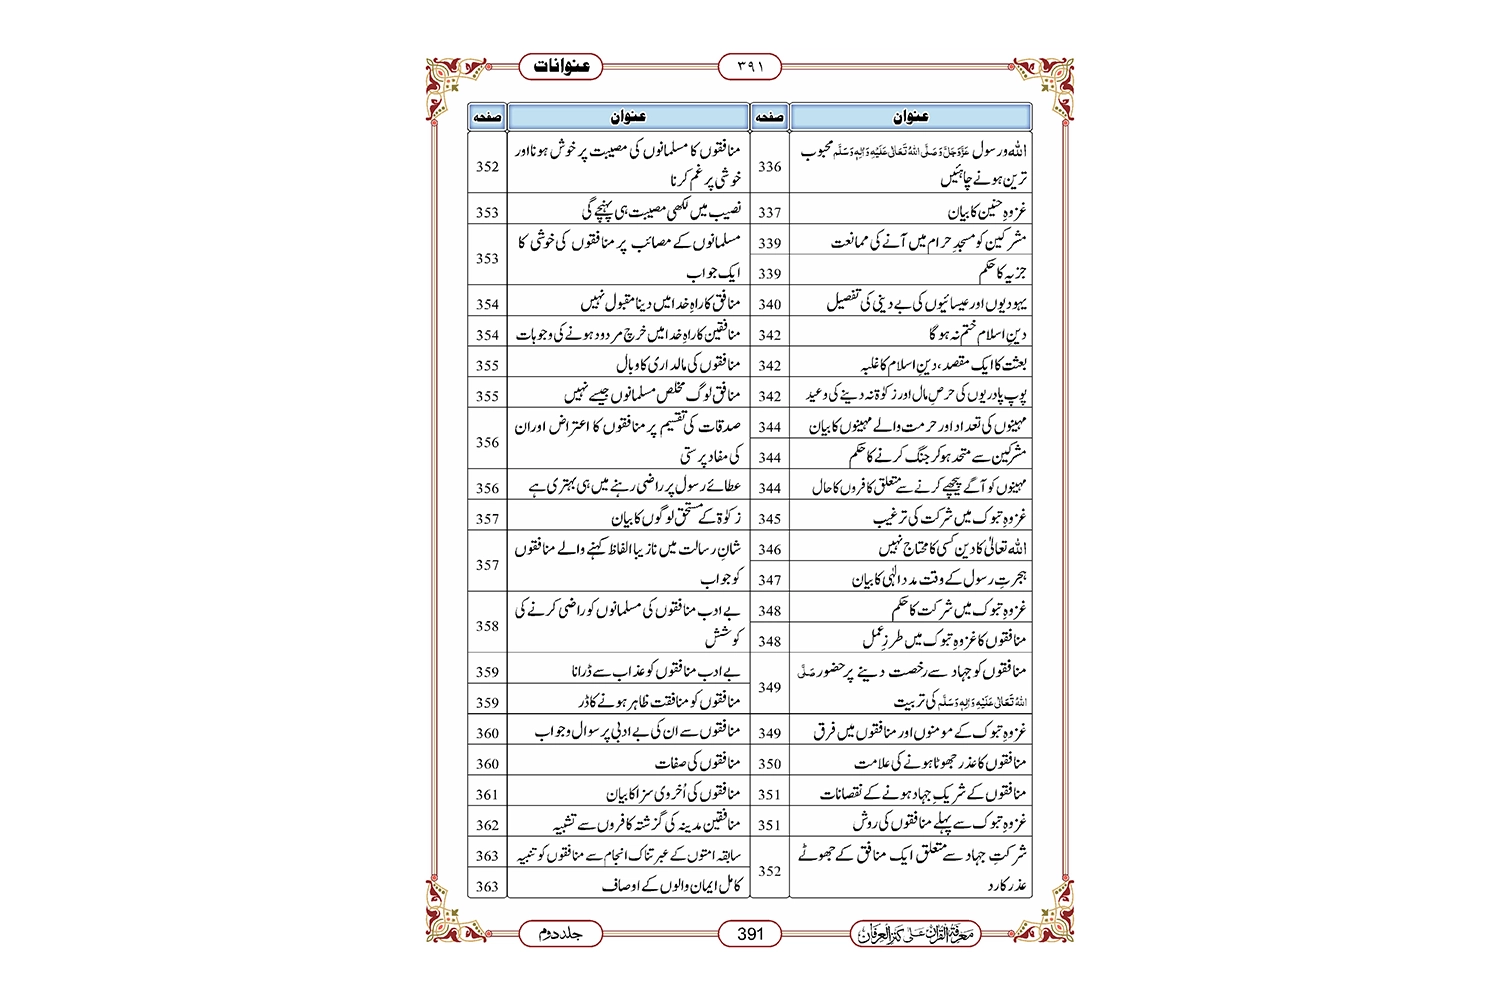 عنوانات
۳۹۱
عنوان
صفحہ
اللہ و رسول عَزَّوَجَلَّ وَ صَلَّی اللہُ تَعَالٰی عَلَیْہِ وَاٰلِہٖ وَسَلَّم محبوب
ترین ہونے چاہئیں
336
غزوہِ حنین کا بیان
337
مشرکین کو مسجدِ حرام میں آنے کی ممانعت
339
جزیہ کا حکم
339
یہودیوں اور عیسائیوں کی بے دینی کی تفصیل
340
دینِ اسلام ختم نہ ہوگا
342
بعثت کا ایک مقصد، دینِ اسلام کا غلبہ
342
پوپ پادریوں کی حرصِ مال اور زکوٰۃ نہ دینے کی وعید
342
مہینوں کی تعداد اور حرمت والے مہینوں کا بیان
344
مشرکین سے متحد ہوکر جنگ کرنے کا حکم
344
مہینوں کو آگے پیچھے کرنے سے متعلق کافروں کا حال
344
غزوہِ تبوک میں شرکت کی ترغیب
345
اللہ تعالیٰ کا دین کسی کا محتاج نہیں
346
ہجرتِ رسول کے وقت مددِ الٰہی کا بیان
347
غزوہِ تبوک میں شرکت کا حکم
348
منافقوں کا غزوہِ تبوک میں طرزِ عمل
348
منافقوں کو جہاد سے رخصت دینے پر حضور صَلَّی
اللہُ تَعَالٰی عَلَیْہِ وَاٰلِہٖ وَسَلَّم کی تربیت
349
غزوہِ تبوک کے مومنوں اور منافقوں میں فرق
349
منافقوں کا عذر جھوٹا ہونے کی علامت
350
منافقوں کے شریکِ جہاد ہونے کے نقصانات
351
غزوہِ تبوک سے پہلے منافقوں کی روش
351
شرکتِ جہاد سے متعلق ایک منافق کے جھوٹے
عذر کا رد
352
عنوان
صفحہ
منافقوں کا مسلمانوں کی مصیبت پر خوش ہونا اور
خوشی پر غم کرنا
352
نصیب میں لکھی مصیبت ہی پہنچے گی
353
مسلمانوں کے مصائب پر منافقوں کی خوشی کا
ایک جواب
353
منافق کا راہِ خدا میں دینا مقبول نہیں
354
منافقین کا راہِ خدا میں خرچ مردود ہونے کی وجوہات
354
منافقوں کی مالداری کا وبال
355
منافق لوگ مخلص مسلمانوں جیسے نہیں
355
صدقات کی تقسیم پر منافقوں کا اعتراض اور ان
کی مفاد پرستی
356
عطائے رسول پر راضی رہنے میں ہی بہتری ہے
356
زکوٰۃ کے مستحق لوگوں کا بیان
357
شانِ رسالت میں نازیبا الفاظ کہنے والے منافقوں
کو جواب
357
بے ادب منافقوں کی مسلمانوں کو راضی کرنے کی
کوشش
358
بے ادب منافقوں کو عذاب سے ڈرانا
359
منافقوں کو منافقت ظاہر ہونے کا ڈر
359
منافقوں سے ان کی بے ادبی پر سوال و جواب
360
منافقوں کی صفات
360
منافقوں کی اُخروی سزا کا بیان
361
منافقینِ مدینہ کی گزشتہ کافروں سے تشبیہ
362
سابقہ امتوں کے عبرتناک انجام سے منافقوں کو تنبیہ
363
کامل ایمان والوں کے اوصاف
363
معرفۃ القرآن علیٰ کنز العرفان
391
جلد دوم